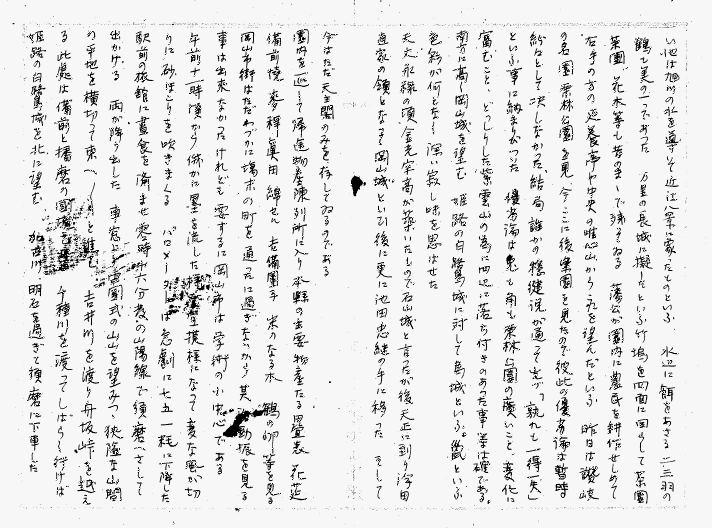 い池は旭川の水を導そ近江八景に象ったものといふ 水辺に餌をあさる 二三羽の
鶴も美の一つであった 万里の長城に擬したといふ竹塢を四面に回らして茶園
菜園 花木等も昔のまゝで残そゐる 藩公が園内に農民を耕作せしめて
右手の方の延養亭や中央の唯心山から之を望んだといふ 昨日は讃岐
の名園栗林公園を見 今こゝに後楽園を見たので彼此の優劣論は暫時
紛々として決しなかった 結局誰かの穏健説が通そ先づ「孰れも一得一失」
といふ事に納まりがついた 優劣論は兎も角も栗林公園の広いこと 変化に
富むこと どっしりした紫雲山の為に四辺に落ち付きのあった事等は確である。
南方に高く岡山城を望む 姫路の白鷺城に対して烏城といふ。 といふ
色彩が何となく深い寂し味を思はせた
天文永禄の頃金光宗高が築いたもので石山城と言ったが後天正に到り浮田
直家の領となって岡山城といひ後に更に池田忠継の手に移った そして
今はただ天主閣のみを存してゐるのである
園内を一巡して帰途物産陳列所に入り本縣の主要物産たる畳表 花莚
備前焼 麦稈真田 綿せん 吉備團子 米のなる木 鶴の卵 等を見る
岡山市街はただわづかに場末の町を通ったに過ぎないから其 勤振を見る
事は出来なかったけれども要するに岡山市は学術の小中心である
午前十一時頃から俄かに墨を流した 空模様になって変な風が切
りに砂ぼこりを吹きまくる バロメーターは急劇に七五一粍に下降した
駅前の旅館に昼食を済ませ零時十六分発の山陽線で須磨へさして
出かける 雨が降り出した 車窓より 式の山山を望みつゝ狭隘な山間
の平地を横切って東へ〱と進む 吉井川を渡り舟坂峠を越え
る 此処は備前と播磨の国境 千種川を渡ってしばらく行けば
姫路の白鷺城を北に望む 加古川、明石を過ぎて須磨に下車した